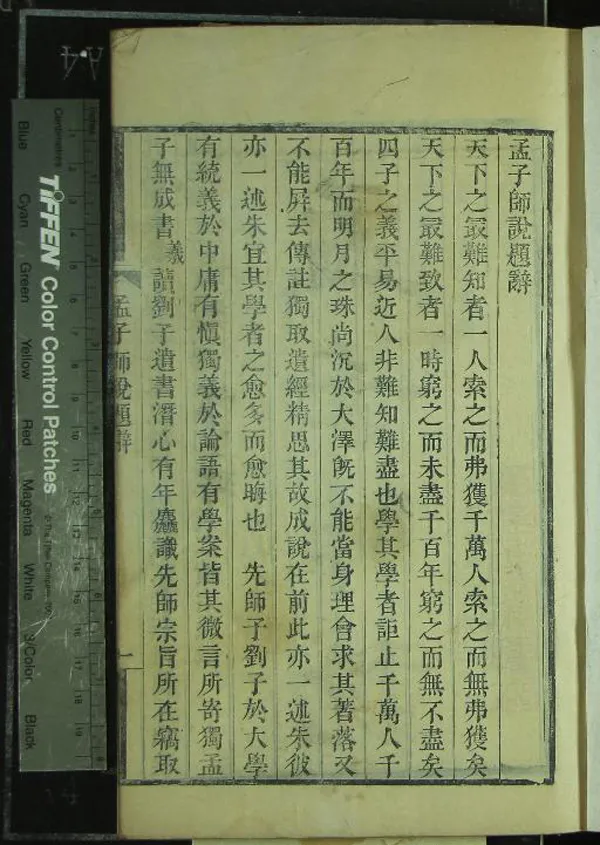 孟子師說題辭
天下之最難知者一人索之而弗獲千萬人索之而無弗獲矣
天下之最難致者一時窮之而未盡千百年窮之而無不盡矣
四子之義平易近人非難知難盡也學其學者詎止千萬人千
百年而明月之珠尚沉於大澤旣不能當身理會求其著落又
不能屛去傳註獨取遺經精思其故成說在前此亦一述朱彼
亦一述朱宜其學者之愈多而愈晦也 先師子劉子於大學
有統義於中庸有愼獨義於論語有學案皆其微言所寄獨孟
子無成書羲讀劉子遺書潛心有年麤識先師宗旨所在竊取
孟子師說題辭
一
Inches
Centimetres
TIFFEN Color Control Patches
Blue
Cyan
Green
Yellow
Red
Magenta
White
3/Color
Black
A4